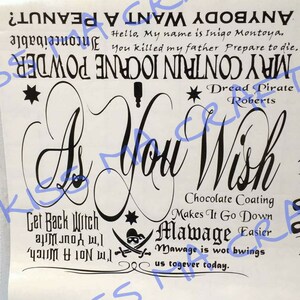 ANYBODY WANT A PEANUT?
Hello, My name is Inigo Montoya.
You killed my father Prepare to die.
Inconceivable
MAY CONTAIN IOCANE POWDER
Dread Pirate
Roberts
As You Wish
Chocolate Coating
Makes It Go Down
Easier
Get Back Witch
I'm Not A Witch,
I'm Your Wife
Mawage
Mawage is wot bwings
us togever today.
KISS MA CRAFT